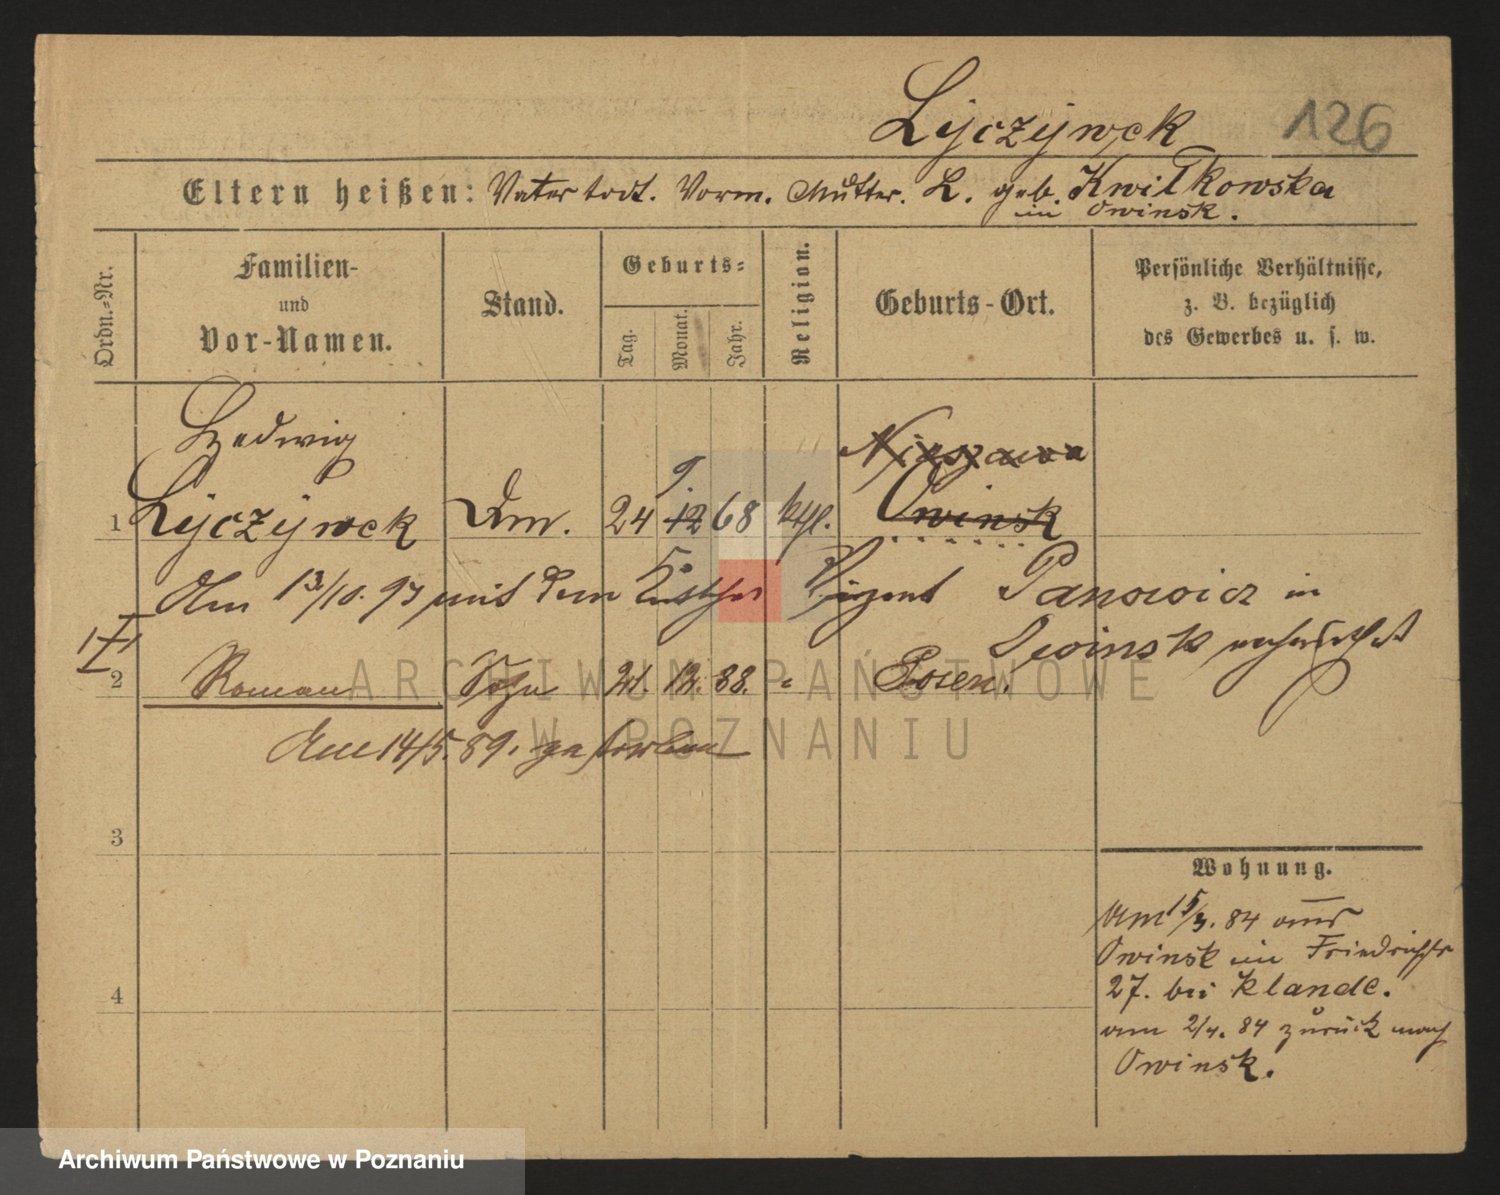 Lyczywek 126
Eltern heißen: Vater todt. Vorm. Mutter. L. geb. Kwiłkowska
in Owinsk.
Ordn.-Nr.
Familien-
und
Vor-Namen.
Stand.
Geburts-
Tag.
Monat.
Jahr.
Religion.
Geburts-Ort.
Persönliche Verhältnisse,
z. B. bezüglich
des Gewerbes u. s. w.
Hedwig
9.
1 Lyczywek Dm. 24 12 68 ktl. Owinsk
Am 13/10. 97 mit dem Vinzent Panowicz in
Owinsk verheirathet
2 Roman Sohn 21. 12. 88. " Posen.
Am 14/5. 89. gestorben
3
4
Wohnung.
Am 15/3. 84 aus
Owinsk in Friedrichstr
27. bei Klande.
am 2/4. 84 zurück nach
Owinsk.
ARCHIWUM PAŃSTWOWE
W POZNANIU
Archiwum Państwowe w Poznaniu